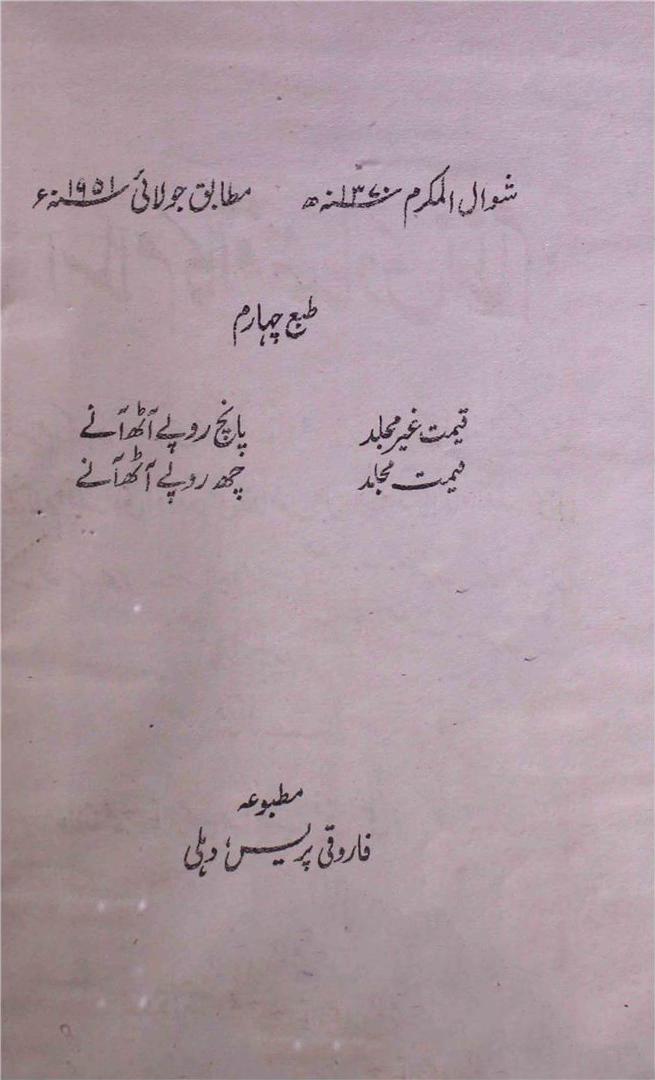 شوال المکرم ۱۳۷۰ھ مطابق جولائی ۱۹۵۱ء
طبع چہارم
قیمت غیر مجلد پانچ روپے آٹھ آنے
قیمت مجلد چھ روپے آٹھ آنے
مطبوعہ
فاروقی پریس، دہلی